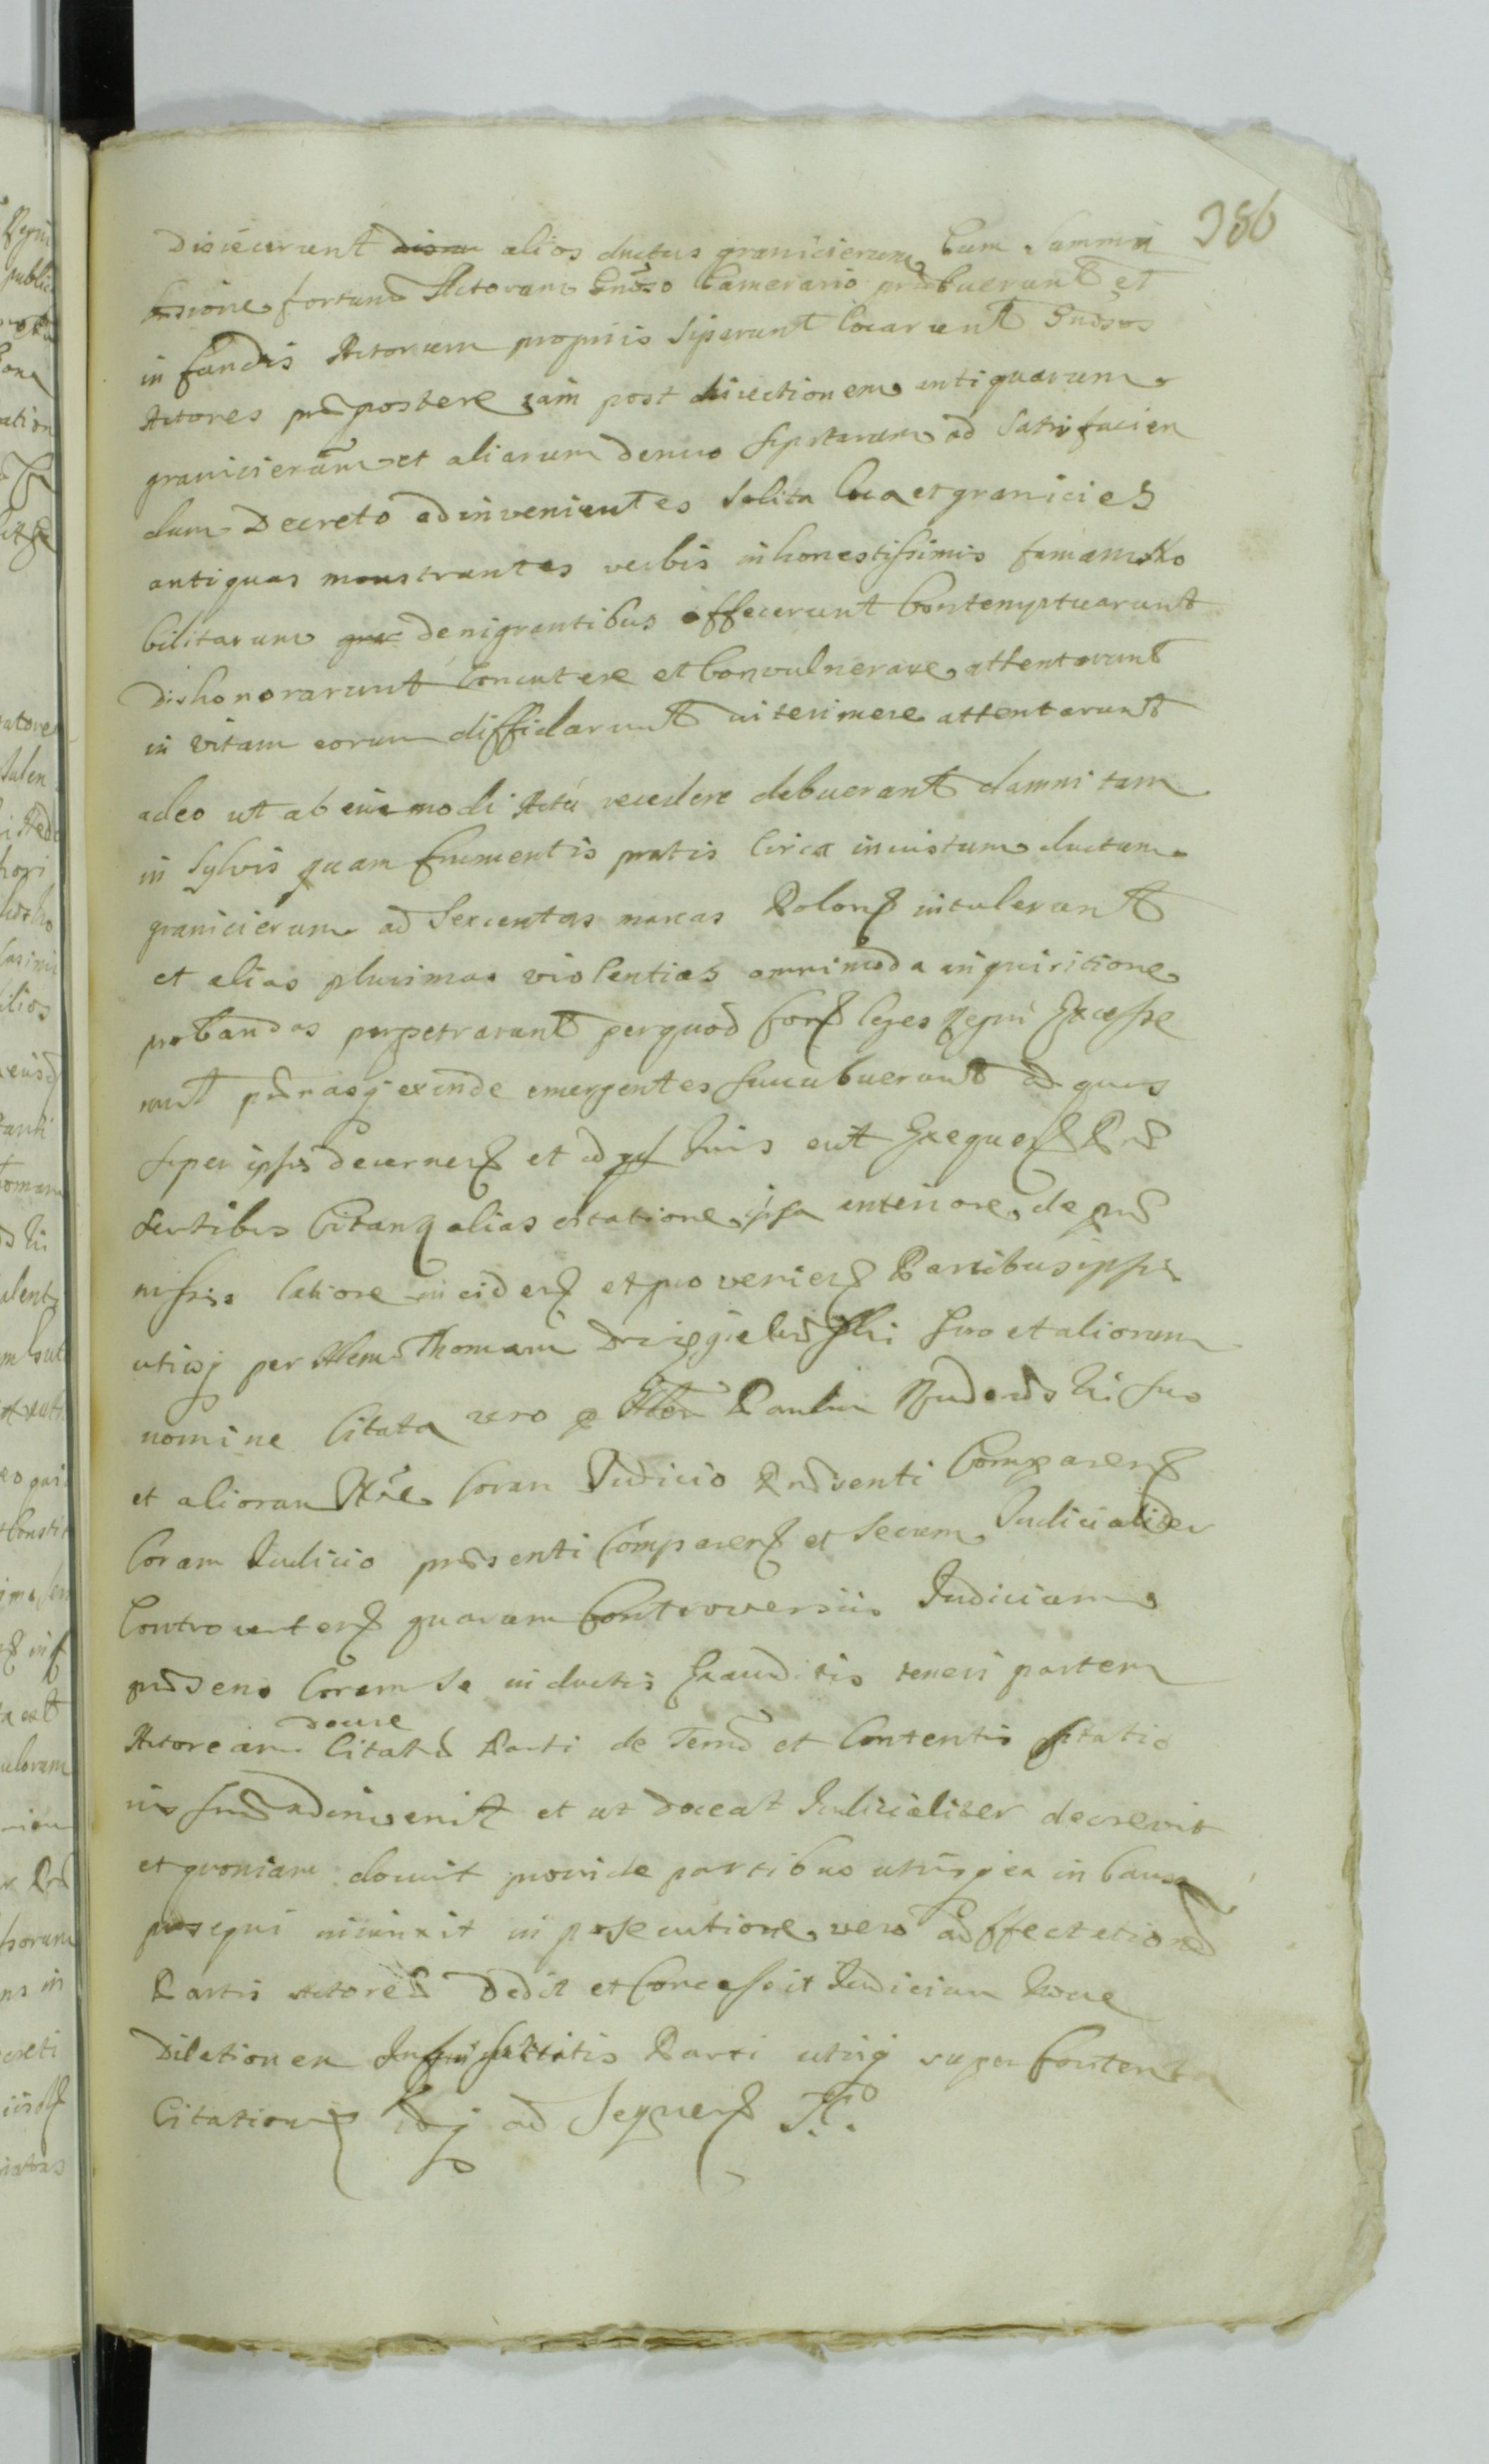 386
Disiecerunt disie alios ductus granicierum Cum Summa
lesione fortunæ Actorum Gnõso Camerario præbuerunt et
in fundis Actorum propriis Siparunt locarunt Gndsos
Actores præpostere iam post disiectionem antiquarum
granicierum et aliarum denuo siptarum ad satisfacien
dum Decreto adinvenientes solita loca et granicies
antiquas monstrantes verbis inhonestissimis famam No
bilitarum denigrantibus affecerunt Contemptuarunt
Dishonorarunt Concutere et Convulnerare attentarunt
in Vitam eorum diffidarunt interimere attentarunt
adeo ut ab eiusmodi Actu recedere debuerant damni tam
in Sylvis quam frumentis pratis Circa iniustum ductum
granicierum ad Sexcentas marcas Polon intulerunt
et alias plurimas violentias omnimoda inquisitione
probandas perpetrarunt per quod Contra leges Regni Excesse
runt pænasq exinde emergentes succubuerunt ad quas
super ipsis decernen et ad Iuris erit Exequen Præ
sentibus Citant alias citatione ipsa anteriore de præ
missis latiore inciden et provenien Partibus ipsis
utrisq per Thomam suo et aliorum
nomine Citata vero p Paulum suo
et aliorum Nõe Coram Iudicio Præsenti Comparen
Coram Iudicio præsenti Comparen et Secum Iudicialiter
Controverten quarum Controversiis Iudicium
præsens Coram se inductis Exauditis teneri partem
Actoream docere Citatæ Parti de Termõ et Contentis Citatio
nis suæ adinvenit et ut doceat Iudicialiter decrevit
et quoniam docuit proinde partibus utrisq ea in Causa
prosequi iniunxit in prosecutione vero ad affectationem
Partis Actoreæ Dedit et Concessit Iudicium hocce
Dilationem Parti utriq super Contenta
Citation ad Sequen